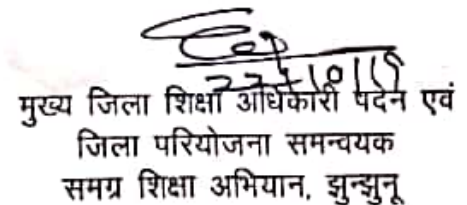 मुख्य जिला शिक्षा अधिकारी पदेन एवं
जिला परियोजना समन्वयक
समग्र शिक्षा अभियान, झुन्झुनू